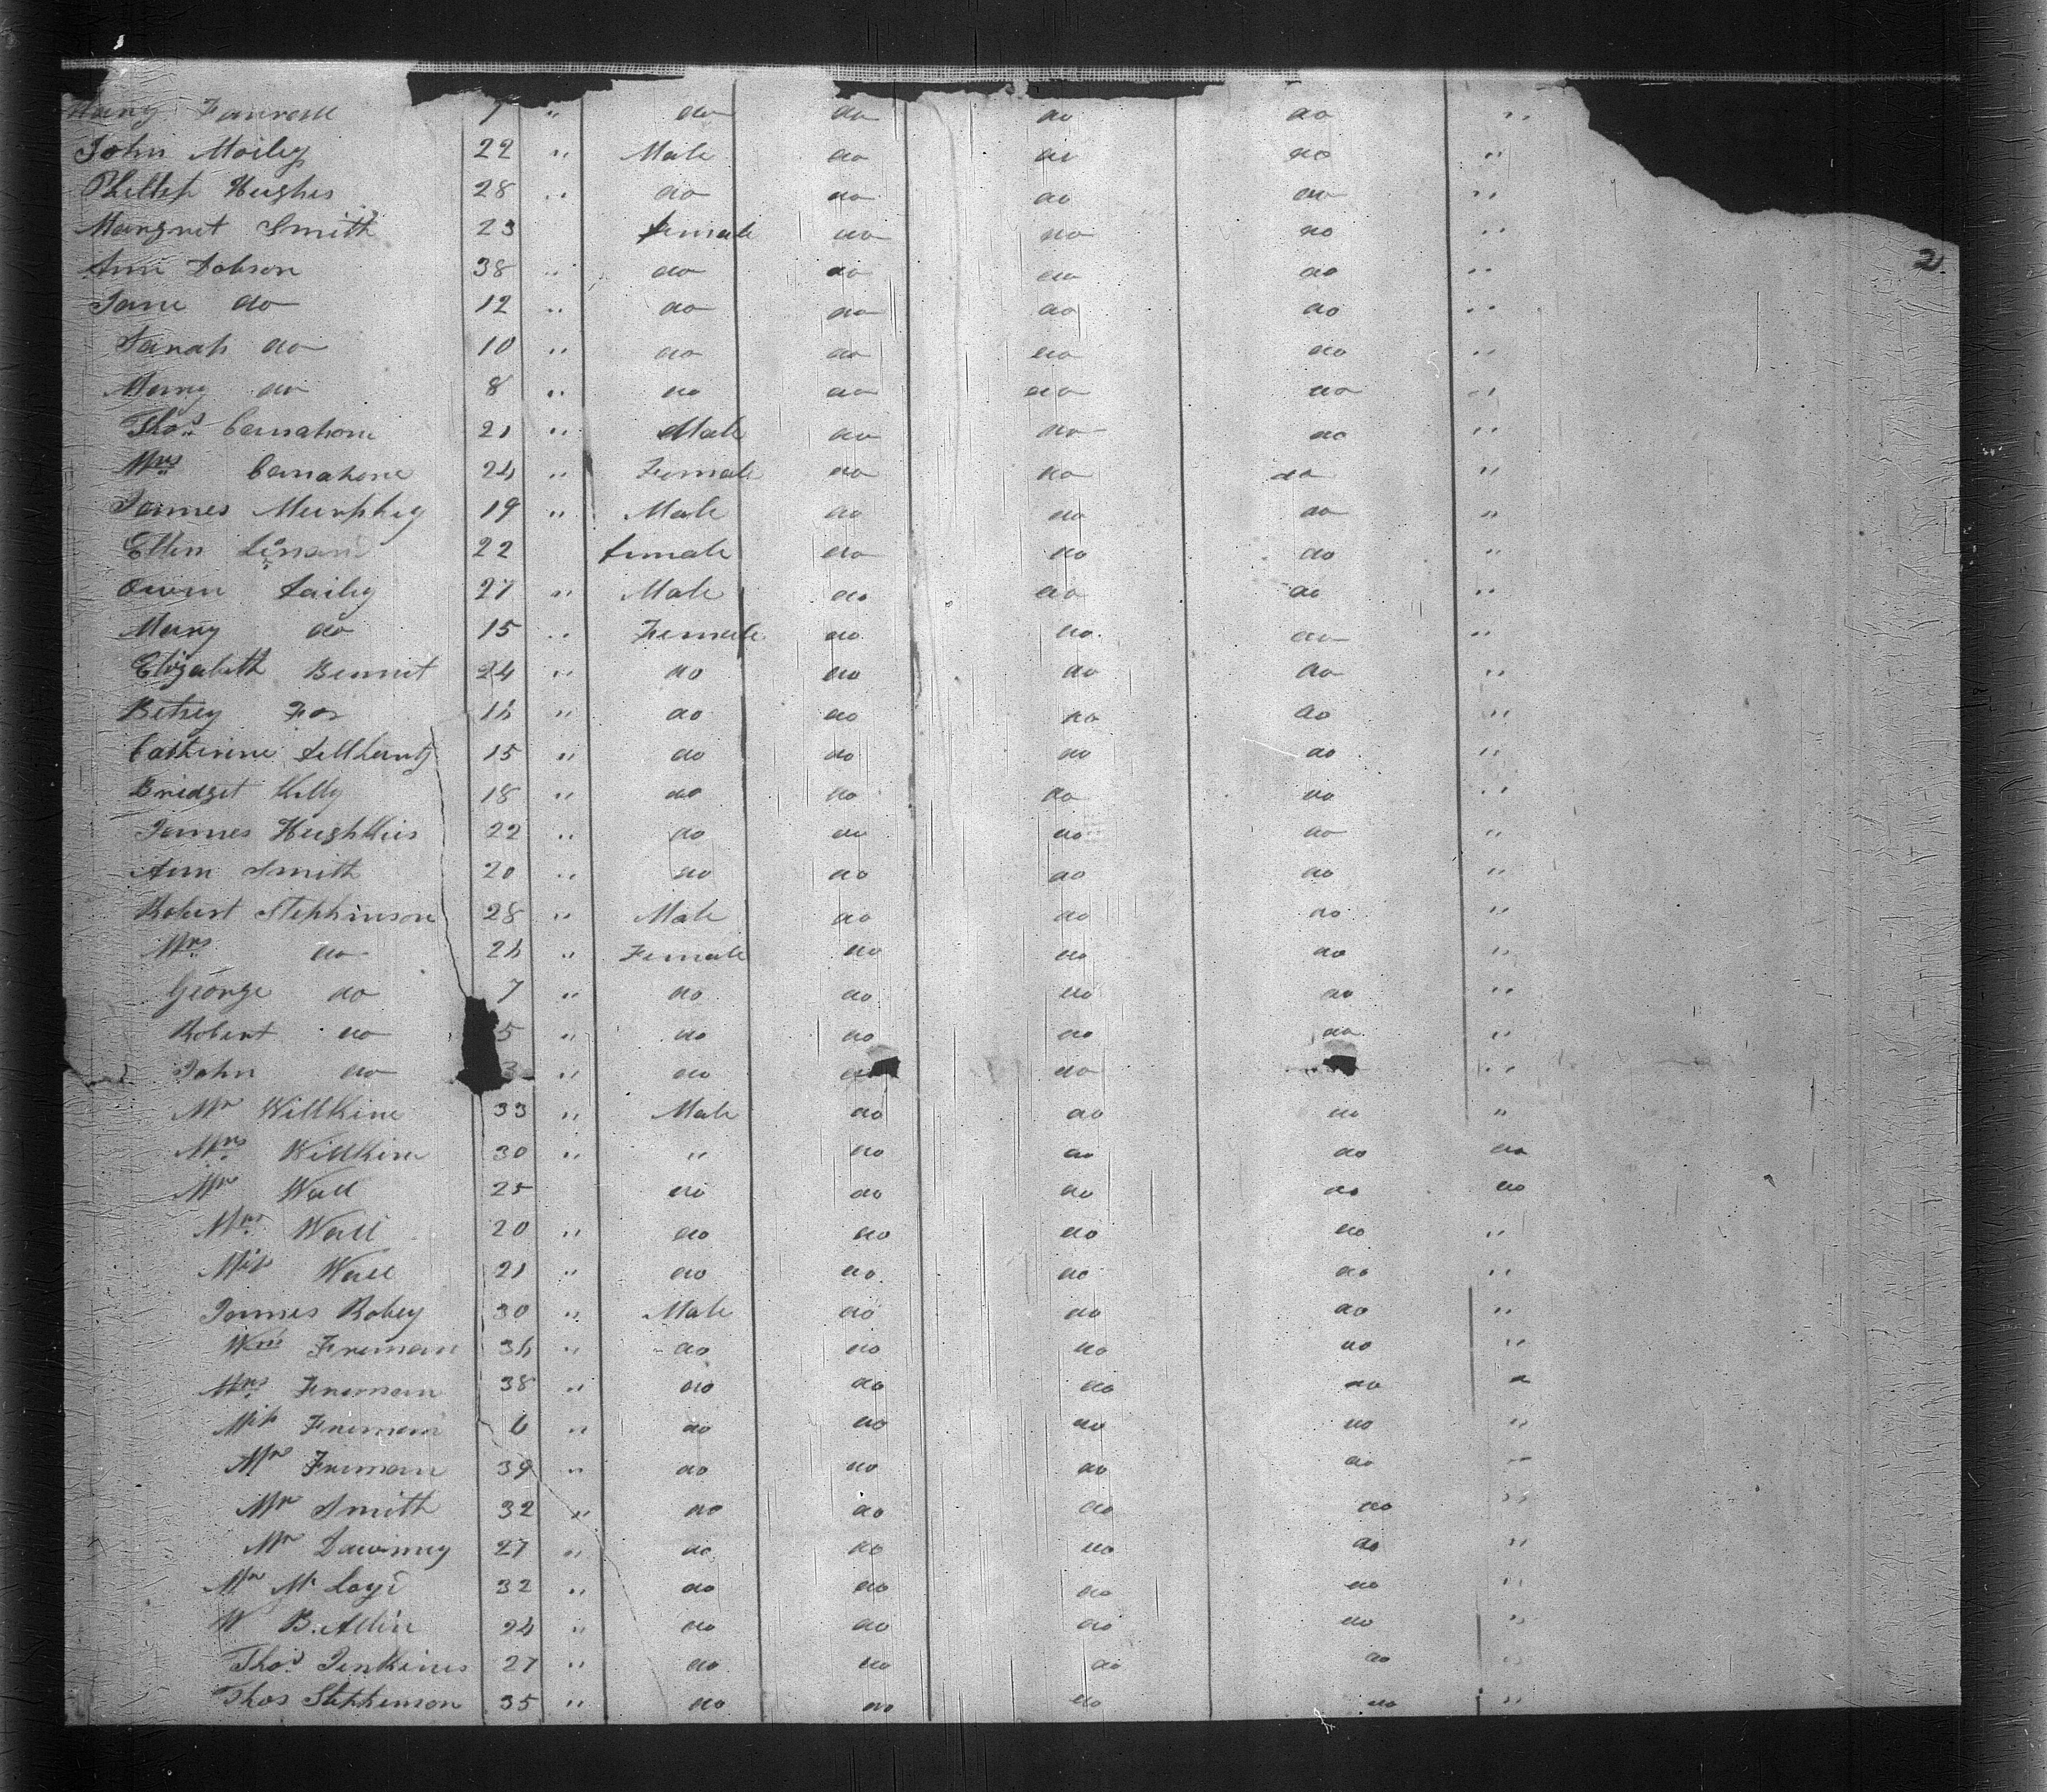 Mary Farrell 7 " do do do do "
John Moiley 22 " Male do do do "
Phillip Hughes 28 " do do do do "
Margret Smith 23 female do do do "
2
Ann Dobson 38 " do do do do "
Jane do 12 " do do do do "
Sarah do 10 " do do do do "
Mary do 8 " do do do do "
Thos Carnahone 21 " Male do do do "
Mrs Carnahone 24 " Female do do do "
James Murphey 19 " Male do do do "
Ellen 22 female do do do "
Owen Lailey 27 " Male do do do "
Mary do 15 " Female do do do "
Elizabeth Bennet 24 " do do do do "
Betsey Fox 16 " do do do do "
Catherine 15 " do do do do "
Bridget Kelly 18 " do do do do "
James 22 " do do do do "
Ann Smith 20 " do do do do "
Robert Stephinson 28 " Male do do do "
Mrs do 26 " Female do do do "
George do 7 " do do do do "
Robert do 5 " do do do do "
John do 3 " do do do "
Mr Willkine 33 " Male do do do "
Mrs Willkine 30 " " do do do do
Mr Wall 25 do do do do do
Mrs Wall 20 " do do do do "
Miss Wall 21 " do do do do "
James Robey 30 " Male do do do "
Wm Freman 36 " do do do do "
Mrs Freman 38 " do do do do "
Miss Freman 6 " do do do do "
Mr Freman 39 " do do do do "
Mr Smith 32 " do do do do "
Mr Dawney 27 " do do do do "
Mr 32 " do do do do "
W B. Allin 24 " do do do do "
Thos Jenkines 27 " do do do do "
Thos Stephenson 35 " do do do do "